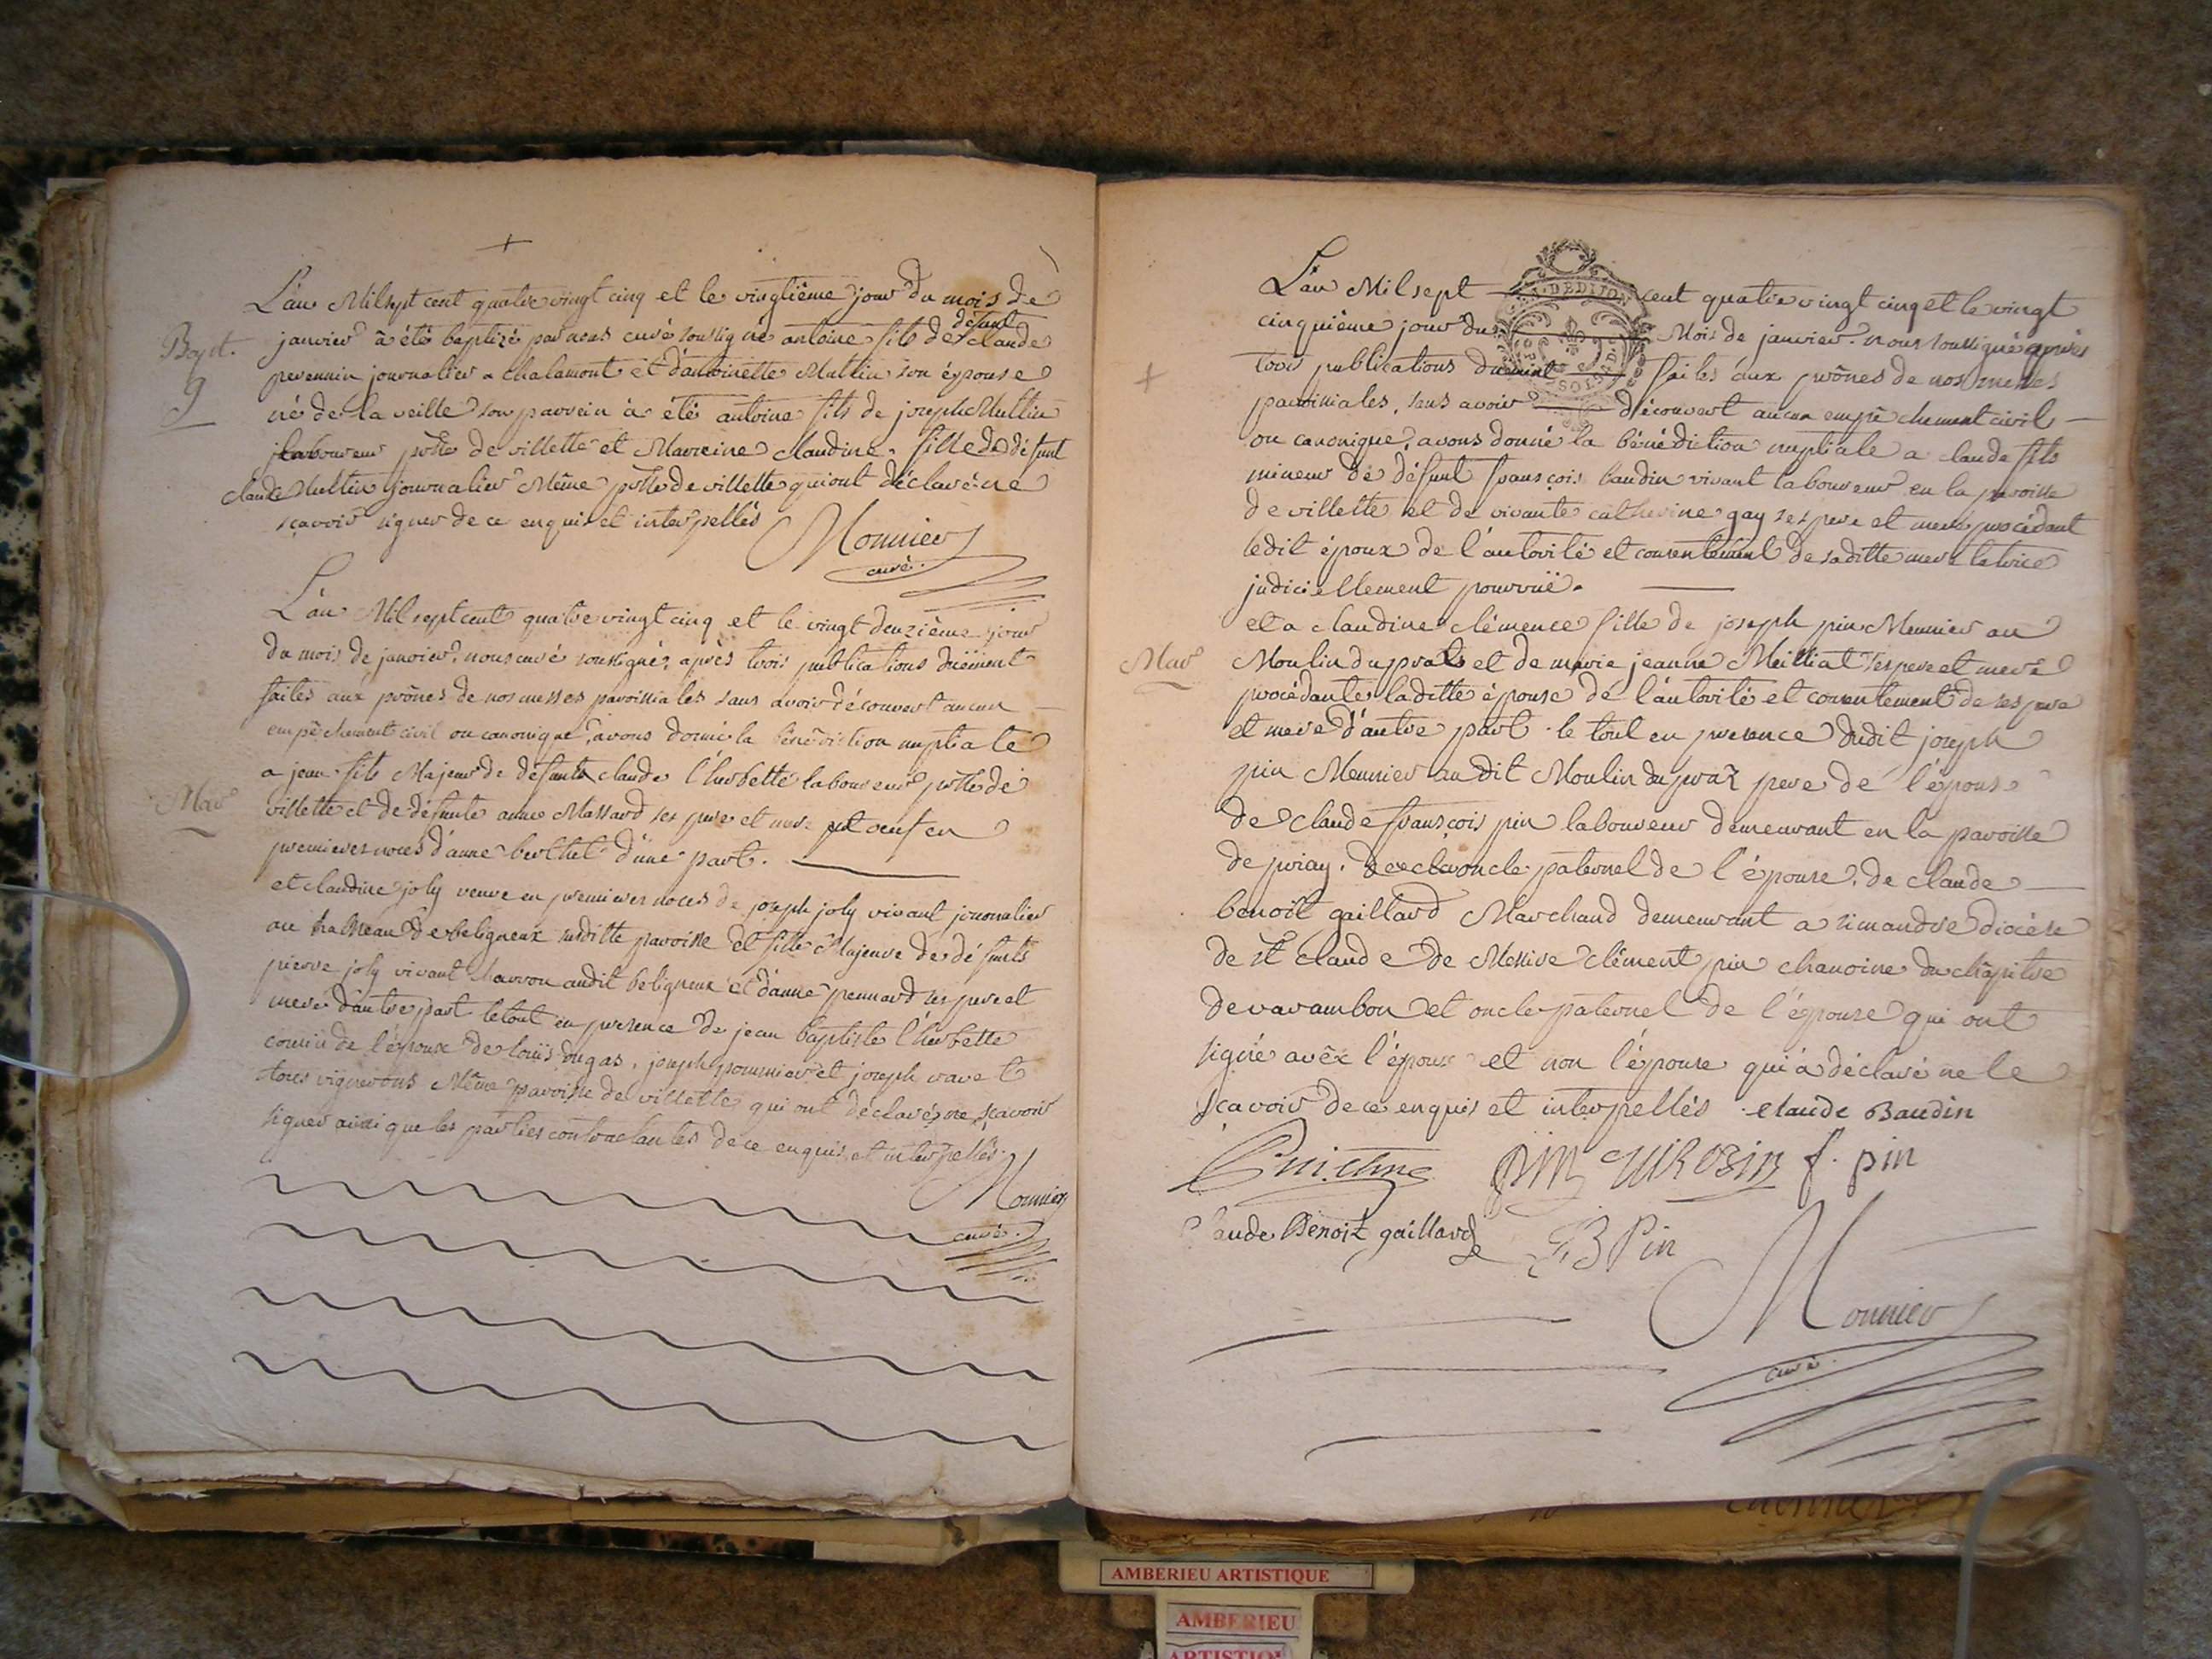 L'an Mil sept cent quatre vingt cinq et le vingtième jour du mois de
Bapt.
9
défunt
janvier à été baptizé par nous curé soussigné antoine fils de claude
perennin journalier a chalamont et d'antoinette Muttin son épouse
né de la veille son parrein à été antoine fils de joseph Muttin
laboureur psse de villette et Mareine claudine fille de défunt
claude Muttin journalier Même psse de villette qui ont déclaré ne
sçavoir signer de ce enquis et interpellés
Monnier
curé.
L'an Mil sept cent quatre vingt cinq et le vingt deuzième jour
du mois de janvier, nous curé soussigné, après trois publications duëment
faites aux prônes de nos messes paroissiales sans avoir découvert aucun
empêchement civil ou canonique, avons donné la bénédiction nuptiale
Mar
a jean fils Majeur de défunt claude l'herbette laboureur psse de
villette et de défunte anne Massard ses pere et mere et veuf en
premieres noces d'anne berthet d'une part.
et claudine joly veuve en premieres noces de joseph joly vivant journalier
au hameau de beligneux susditte paroisse et fille Majeure de défunts
pierre joly vivant charron audit beligneux et d'anne pennard ses pere et
mere d'autre part le tout en presence de jean baptiste l'herbette
cousin de l'époux de louis dugas, joseph pommier et joseph ravet
tous vignerons Même paroisse de villette qui ont déclarés ne sçavoir
signer ainsi que les parties contractantes de ce enquis et interpellés.
Monnier
curé.
L'an Mil sept cent quatre vingt cinq et le vingt
DEDIJON
cinquième jour du Mois de janvier. nous soussigné après
trois publications duëment faites aux prônes de nos messes
paroissiales, sans avoir découvert aucun empêchement civil
ou canonique, avons donné la bénédiction nuptiale a claude fils
mineur de défunt françois baudin vivant laboureur en la paroisse
de villette et de vivante catherine gay ses pere et mere procédant
ledit époux de l'autorité et consentement de saditte mere tutrice
judiciellement pourvuë.
et a claudine clémence fille de joseph pin Meunier au
Mar
Moulin du prats et de marie jeanne Meilliat ses pere et mere
procédante laditte épouse de l'autorité et consentement de ses pere
et mere d'autre part. le tout en presence dudit joseph
pin Meunier audit Moulin du praz pere de l'épouse
de claude françois pin laboureur demeurant en la paroisse
de priay. oncle paternel de l'épouse, de claude
benoit gaillard Marchand demeurant a simandre diocèse
de st claude de Messire clément pin chanoine du châpitre
de varambon et oncle paternel de l'épouse qui ont
signé avec l'époux et non l'épouse qui à déclaré ne le
sçavoir de ce enquis et interpellés. claude Baudin
pin f. pin
Claude Benoit gaillard Pin
Monnier
curé.
AMBERIEU ARTISTIQUE
AMBERIEU
ARTISTIQUE